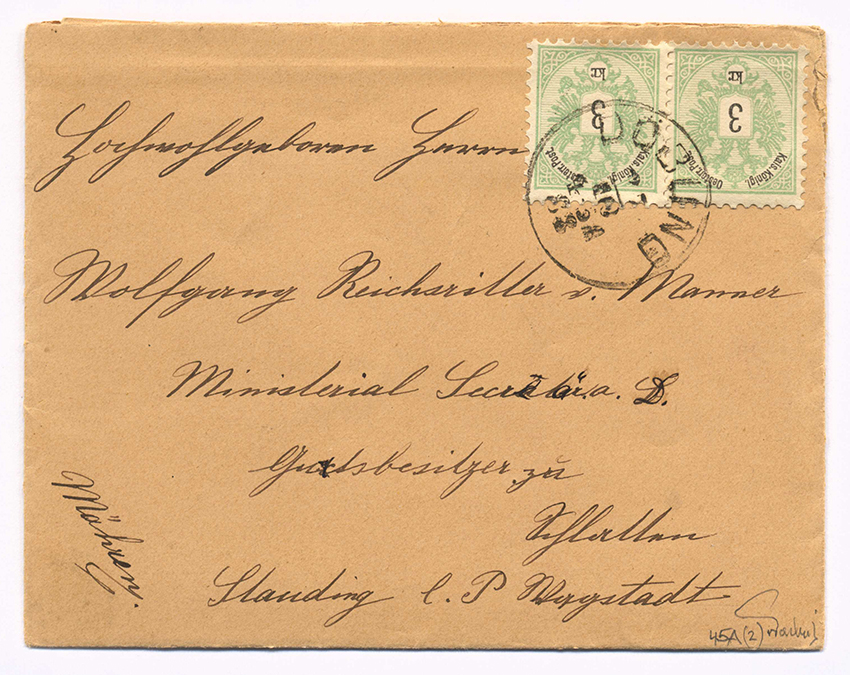 3 kr.
Kais. Königl.
Oesterr. Post
3 kr.
Kais. Königl.
Oesterr. Post
DÖBLING
Hochwohlgeboren Herrn
Wolfgang Reichsritter v. Manner
Ministerial Secretär a. D.
Gutsbesitzer zu
Schlatten
Mähren.
Stauding l. P. Wagstadt
45A(2)